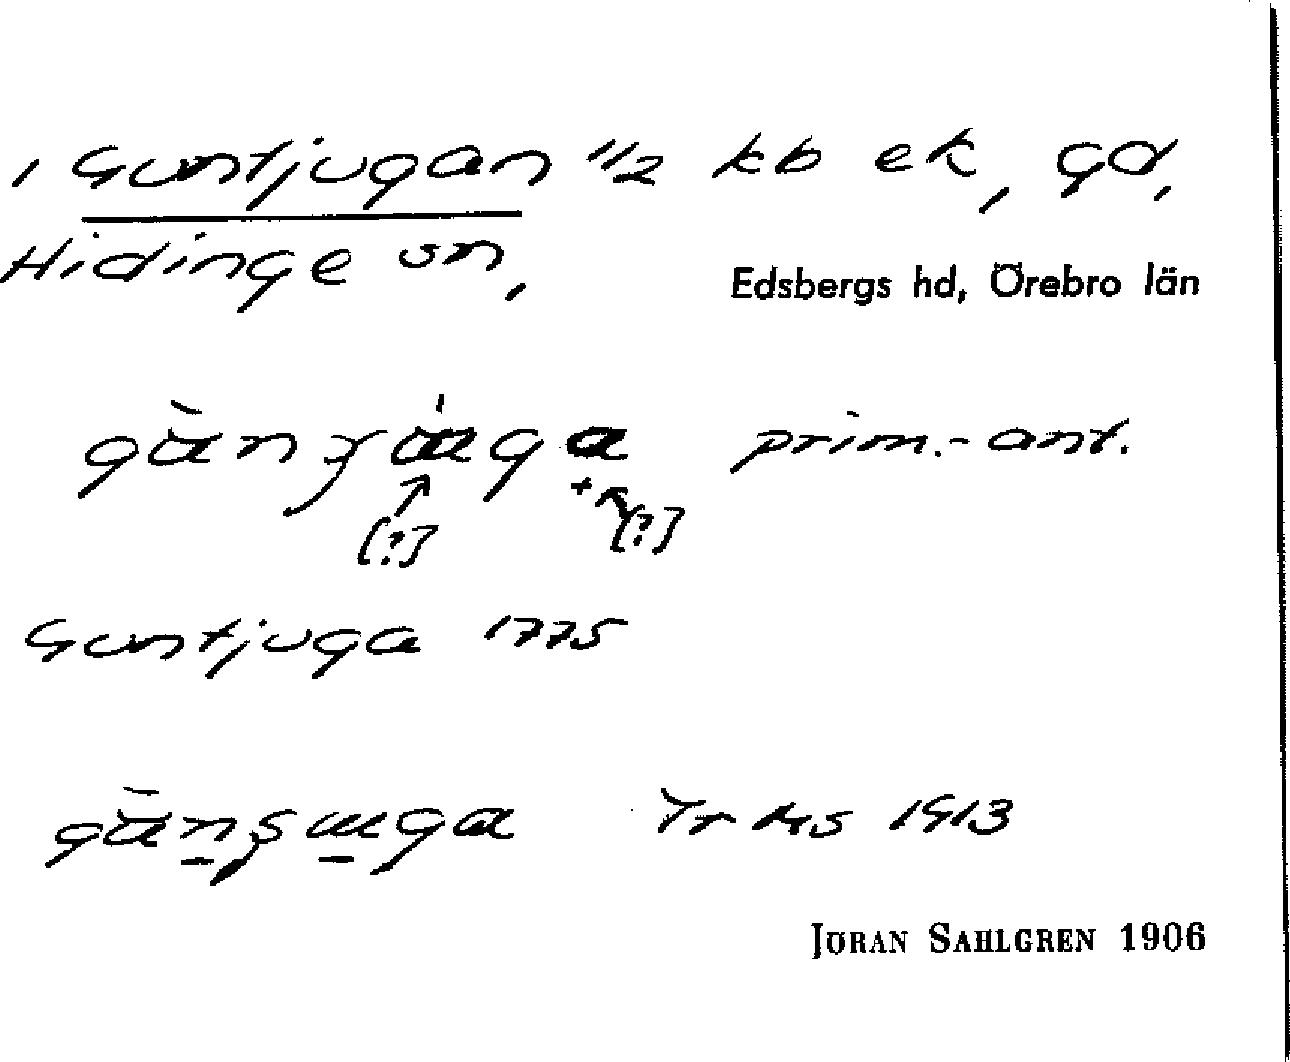 , Guntjugan 1/2 kb ek, gd,
Hidinge sn,
Edsbergs hd, Örebro län
prim.-ant.
[?] [?]
Guntjuga 1775
1913
JÖRAN SAHLGREN 1906